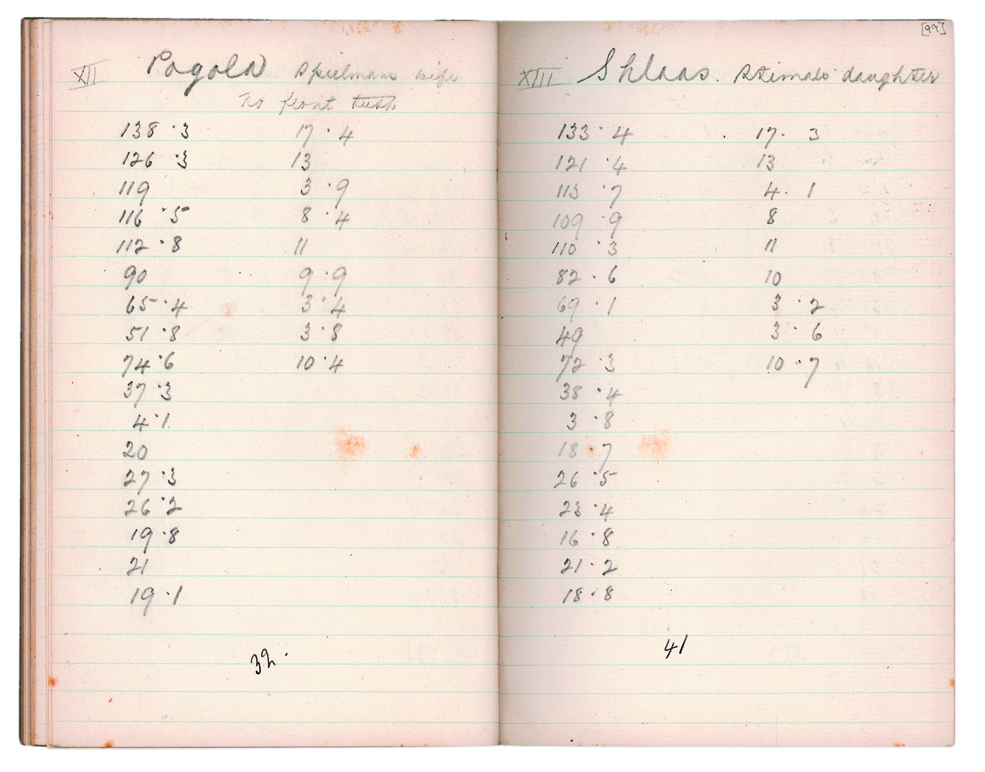 XII Pogold Spielmans wife
No front teeth
138·3 17·4
126·3 13
119 3·9
116·5 8·4
112·8 11
90 9·9
65·4 3·4
51·8 3·8
74·6 10·4
37·3
4·1
20
27·3
26·2
19·8
21
19·1
32.
[99]
XIII Shlaas. daughter
133·4 17·3
121·4 13
113·7 4·1
109·9 8
110·3 11
82·6 10
69·1 3·2
49 3·6
72·3 10·7
38·4
3·8
18·7
26·5
23·4
16·8
21·2
18·8
41